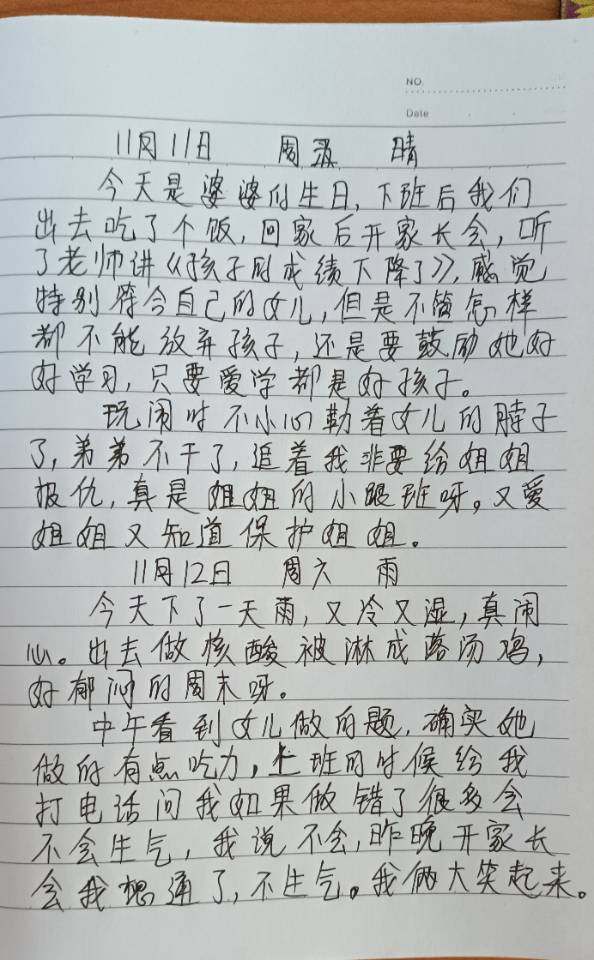 NO.
Date
11月11日 周五 晴
今天是婆婆的生日,下班后我们
出去吃了个饭,回家后开家长会,听
了老师讲《孩子的成绩下降了》,感觉
特别符合自己的女儿,但是不管怎样
都不能放弃孩子,还是要鼓励她好
好学习,只要爱学都是好孩子。
玩闹时不小心勒着女儿的脖子
了,弟弟不干了,追着我非要给姐姐
报仇,真是姐姐的小跟班呀。又爱
姐姐又知道保护姐姐。
11月12日 周六 雨
今天下了一天雨,又冷又湿,真闹
心。出去做核酸被淋成落汤鸡,
好郁闷的周末呀。
中午看到女儿做的题,确实她
做的有点吃力,上班的时候给我
打电话问我如果做错了很多会
不会生气,我说不会,昨晚开家长
会我想通了,不生气。我俩大笑起来。